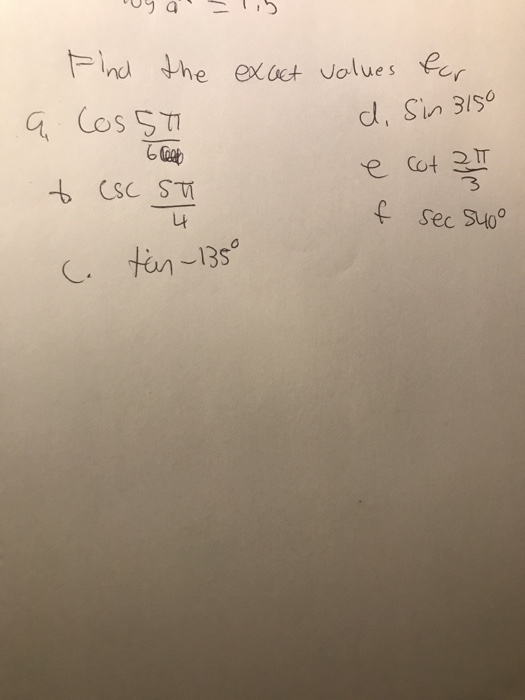 = 1.5
Find the exact values for
a. cos 5π/6
b csc 5π/4
c. tan -135°
d. sin 315°
e cot 2π/3
f sec 540°